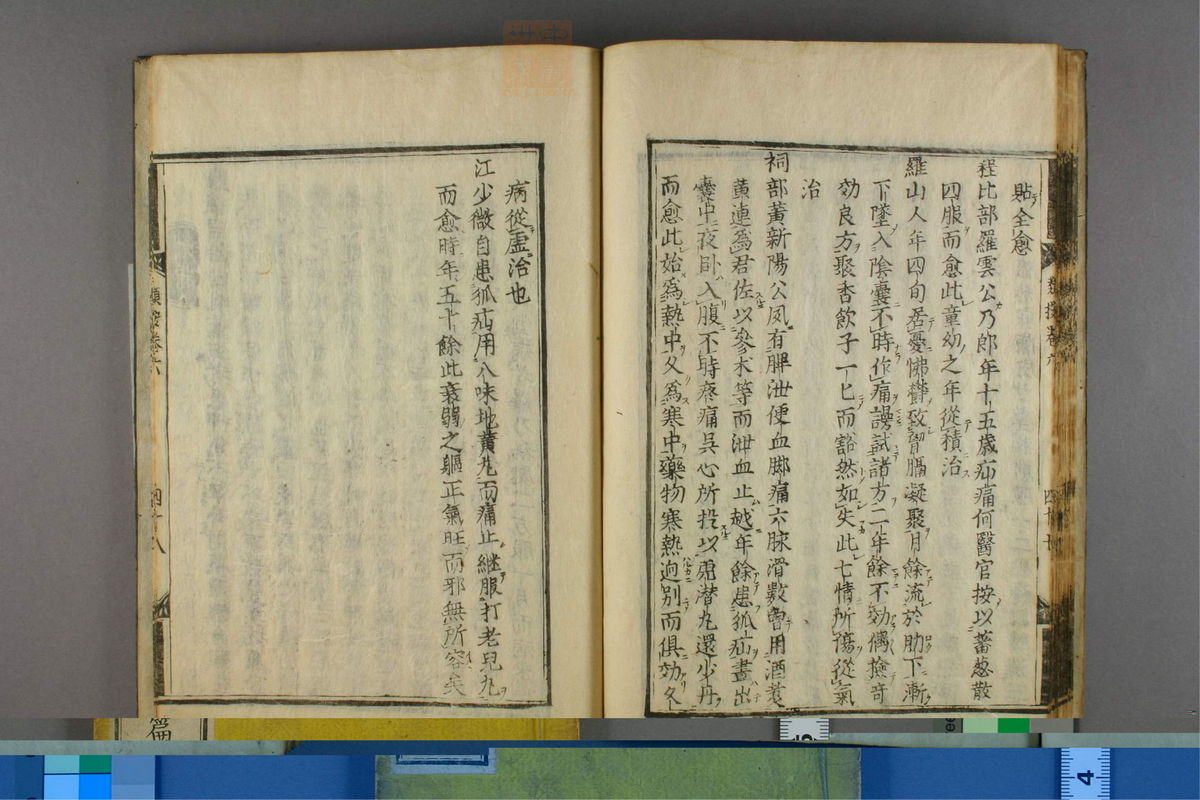 貼全愈
程比部羅雲公乃郎年十五歲疝痛何醫官按以蓄葱散
四服而愈此童幼之年從積治
羅山人年四旬居憂怫欝致胷膈凝聚月餘流於肋下漸
下墜入陰囊不時作痛謾試諸方二年餘不効偶撿奇
効良方聚香飲子一匕而豁然如失此七情所傷從氣
治
祠部黃新陽公夙有脾泄便血脚痛六脉滑數曾用酒煑
黃連爲君佐以參朮等而泄血止越年餘患狐疝晝出
囊中夜卧入腹不時疼痛呉心所投以虎潜丸還少丹
而愈此始爲熱中父爲寒中藥物寒熱逈別而俱効冬
病從虛治也
江少微自患狐疝用八味地黃丸而痛止継服打老兒丸
而愈時年五十餘此衰弱之軀正氣旺而邪無所容矣
四十八